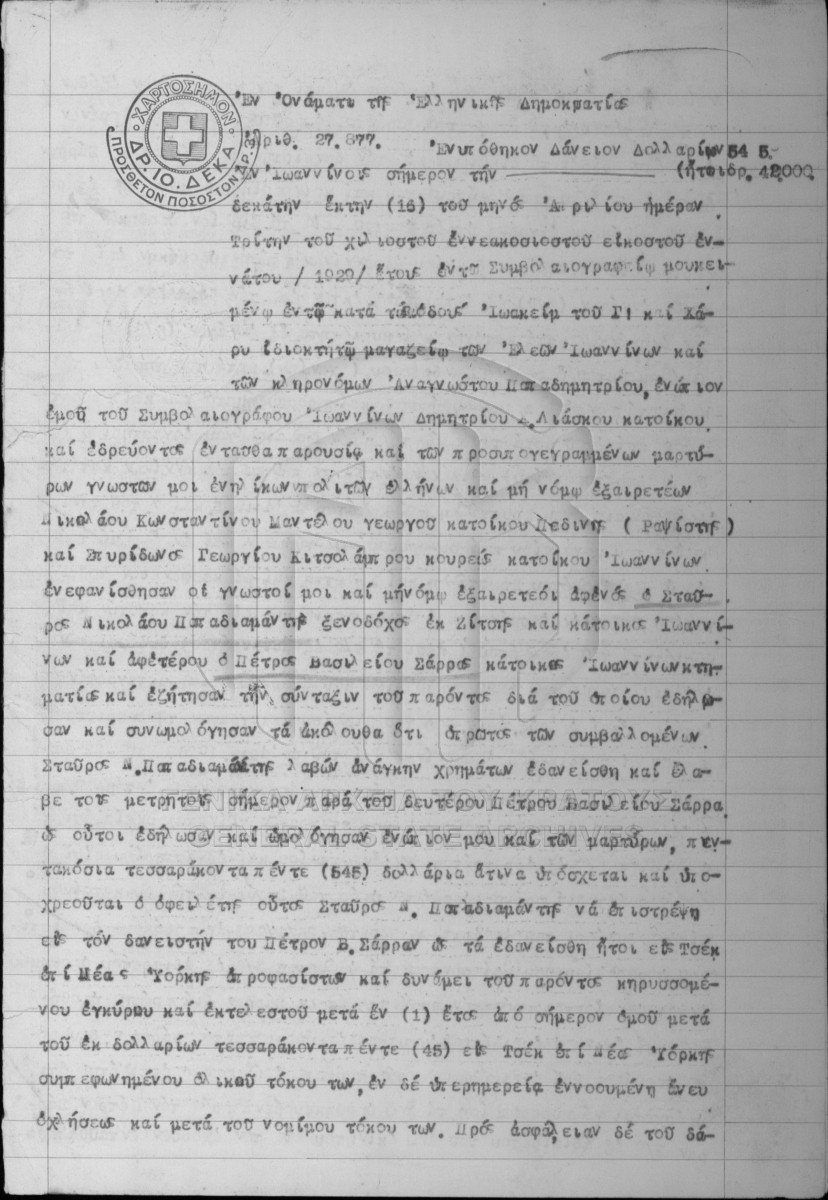 ΧΑΡΤΟΣΗΜΟΝ
ΔΡ. ΙΟ. ΔΕΚΑ
ΠΡΟΣΘΕΤΟΝ ΠΟΣΟΣΤΟΝ ΔΡ. 3
Ἐν Ὀνόματι τῆς Ἑλληνικῆς Δημοκρατίας
Ἀριθ. 27.877. Ἐνυπόθηκον Δάνειον Δολλαρίων 545.-
Ἐν Ἰωαννίνοις σήμερον τήν (ἤτοι δρ. 42,000
δεκάτην ἕκτην (16) τοῦ μηνός Ἀπριλίου ἡμέραν
Τρίτην τοῦ χιλιοστοῦ ἐννεακοσιοστοῦ εἰκοστοῦ ἐν-
νάτου /1929/ ἔτους ἐν τῷ Συμβολαιογραφείῳ μου κει-
μένῳ ἐντῷ κατά τάς ὁδούς Ἰωακείμ τοῦ Γ! καί Χά-
ρυ ἰδιοκτήτῳ μαγαζείῳ τῶν Ἐλεῶν Ἰωαννίνων καί
τῶν κληρονόμων Ἀναγνώστου Παπαδημητρίου, ἐνώπιον
ἐμοῦ τοῦ Συμβολαιογράφου Ἰωαννίνων Δημητρίου Λιάσκου κατοίκου
καί ἑδρεύοντος ἐνταῦθα παρουσίᾳ καί τῶν προσυπογεγραμμένων μαρτύ-
ρων γνωστῶν μοι ἐνηλίκων πολιτῶν ἑλλήνων καί μή νόμῳ ἐξαιρετέων
Νικολάου Κωνσταντίνου Μαντέλου γεωργοῦ κατοίκου Πεδινῆς ( Ραψίστης )
καί Σπυρίδωνος Γεωργίου Κιτσολάμπρου κουρέως κατοίκου Ἰωαννίνων
ἐνεφανίσθησαν οἱ γνωστοί μοι καί μή νόμῳ ἐξαιρετέοι ἀφενός ὁ Σταῦ-
ρος Νικολάου Παπαδιαμάντης ξενοδόχος ἐκ Ζίτσης καί κάτοικος Ἰωαννί-
νων καί ἀφετέρου ὁ Πέτρος Βασιλείου Σάρρας κάτοικος Ἰωαννίνων κτη-
ματίας καί ἐζήτησαν τήν σύνταξιν τοῦ παρόντος διά τοῦ ὁποίου ἐδήλω-
σαν καί συνωμολόγησαν τά ἀκόλουθα ὅτι ὁ πρῶτος τῶν συμβαλλομένων
Σταῦρος Ν. Παπαδιαμάντης λαβών ἀνάγκην χρημάτων ἐδανείσθη καί ἔλα-
βε τοῖς μετρητοῖς σήμερον παρά τοῦ δευτέρου Πέτρου Βασιλείου Σάρρα
ὡς οὗτοι ἐδήλωσαν καί ὡμολόγησαν ἐνώπιον μου καί τῶν μαρτύρων, πεν-
τακόσια τεσσαράκοντα πέντε (545) δολλάρια ἅτινα ὑπόσχεται καί ὑπο-
χρεοῦται ὁ ὀφειλέτης οὗτος Σταῦρος Ν. Παπαδιαμάντης νά ἐπιστρέψῃ
εἰς τόν δανειστήν του Πέτρον Β. Σάρραν ὡς τά ἐδανείσθη ἤτοι εἰς Τσέκ
ἐπί Νέας Ὑόρκης ἀπροφασίστως καί δυνάμει τοῦ παρόντος κηρυσσομέ-
νου ἐγκύρου καί ἐκτελεστοῦ μετά ἕν (1) ἔτος ἀπό σήμερον ὁμοῦ μετά
τοῦ ἐκ δολλαρίων τεσσαράκοντα πέντε (45) εἰς Τσέκ ἐπί Νέας Ὑόρκης
συμπεφωνημένου ὁλικοῦ τόκου των, ἐν δέ ὑπερημερείᾳ ἐννοουμένῃ ἄνευ
ὀχλήσεως καί μετά τοῦ νομίμου τόκου των. Πρός ἀσφάλειαν δέ τοῦ δα-
ΓΕΝΙΚΑ ΑΡΧΕΙΑ ΤΟΥ ΚΡΑΤΟΥΣ
GENERAL STATE ARCHIVES